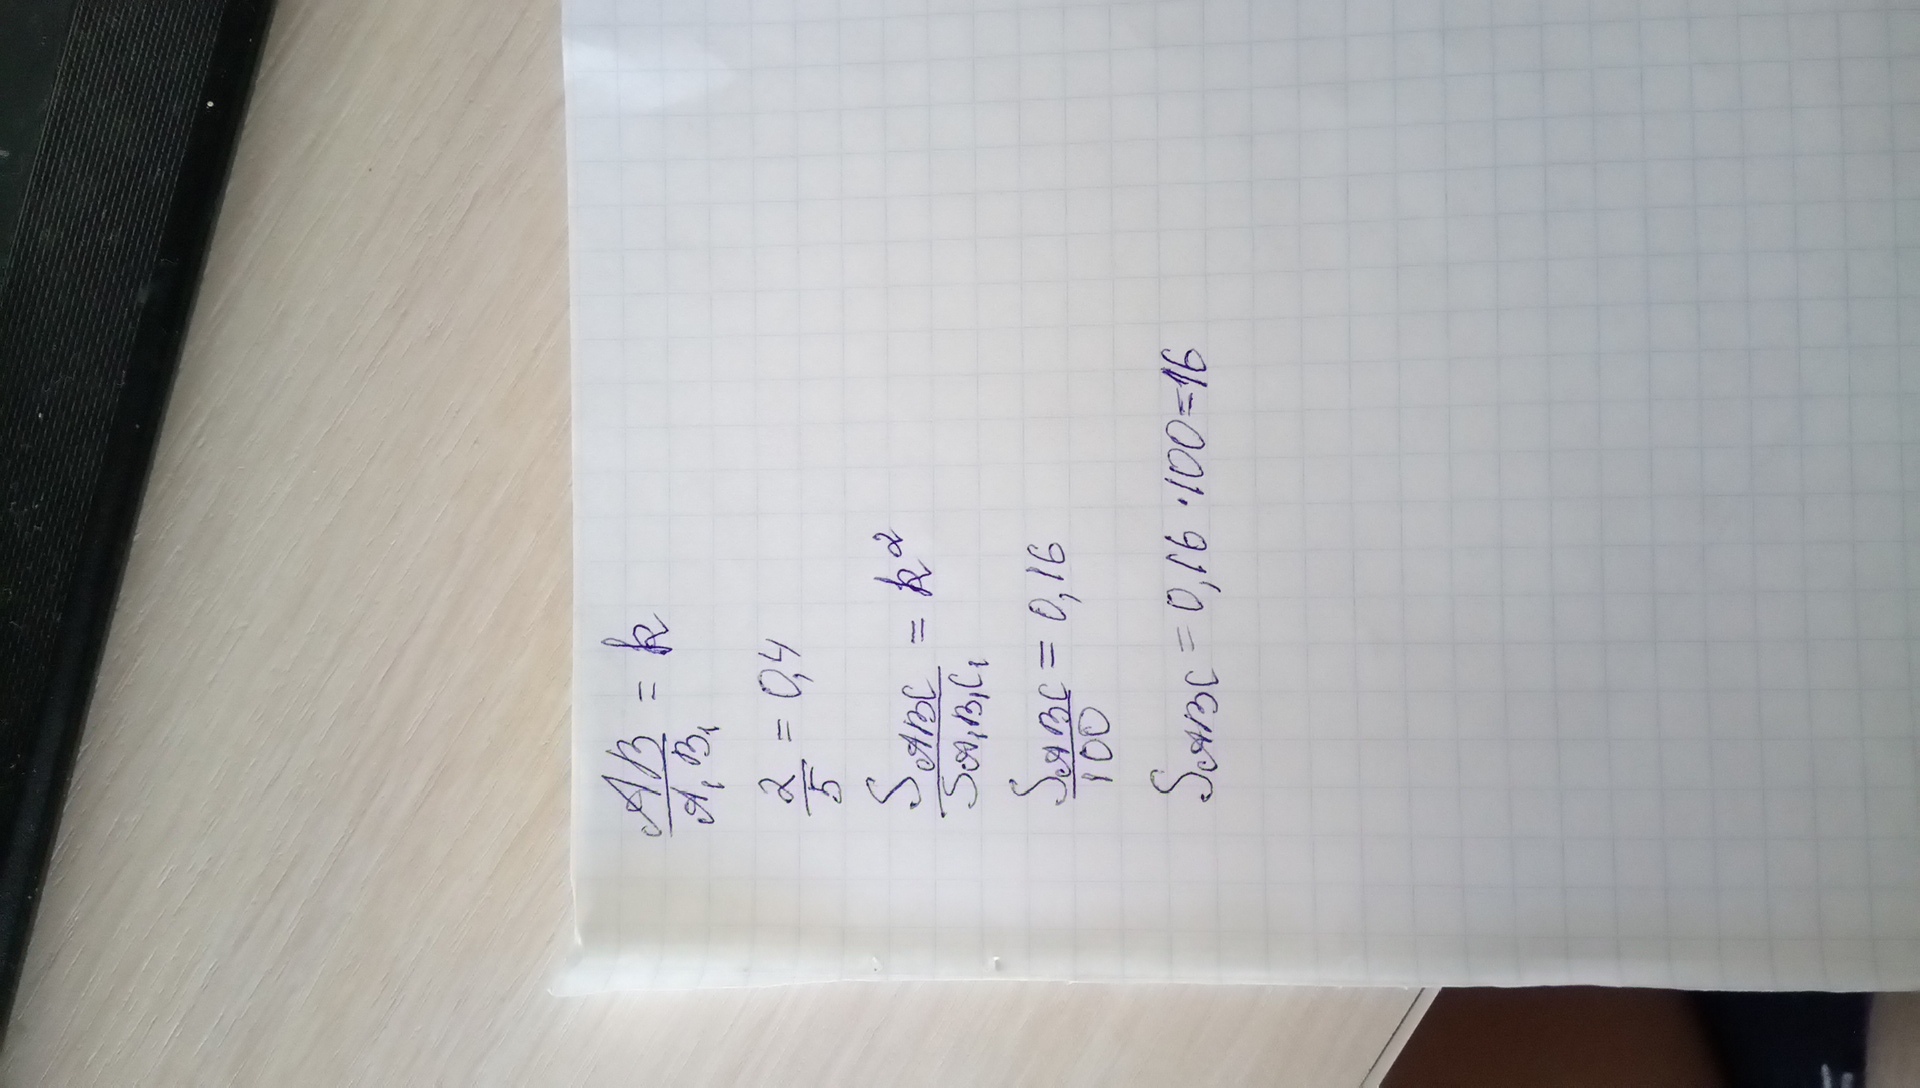 AB/A₁B₁ = k
2/5 = 0,4
S ABC/S A₁B₁C₁ = k²
S ABC/100 = 0,16
S ABC = 0,16 · 100 = 16